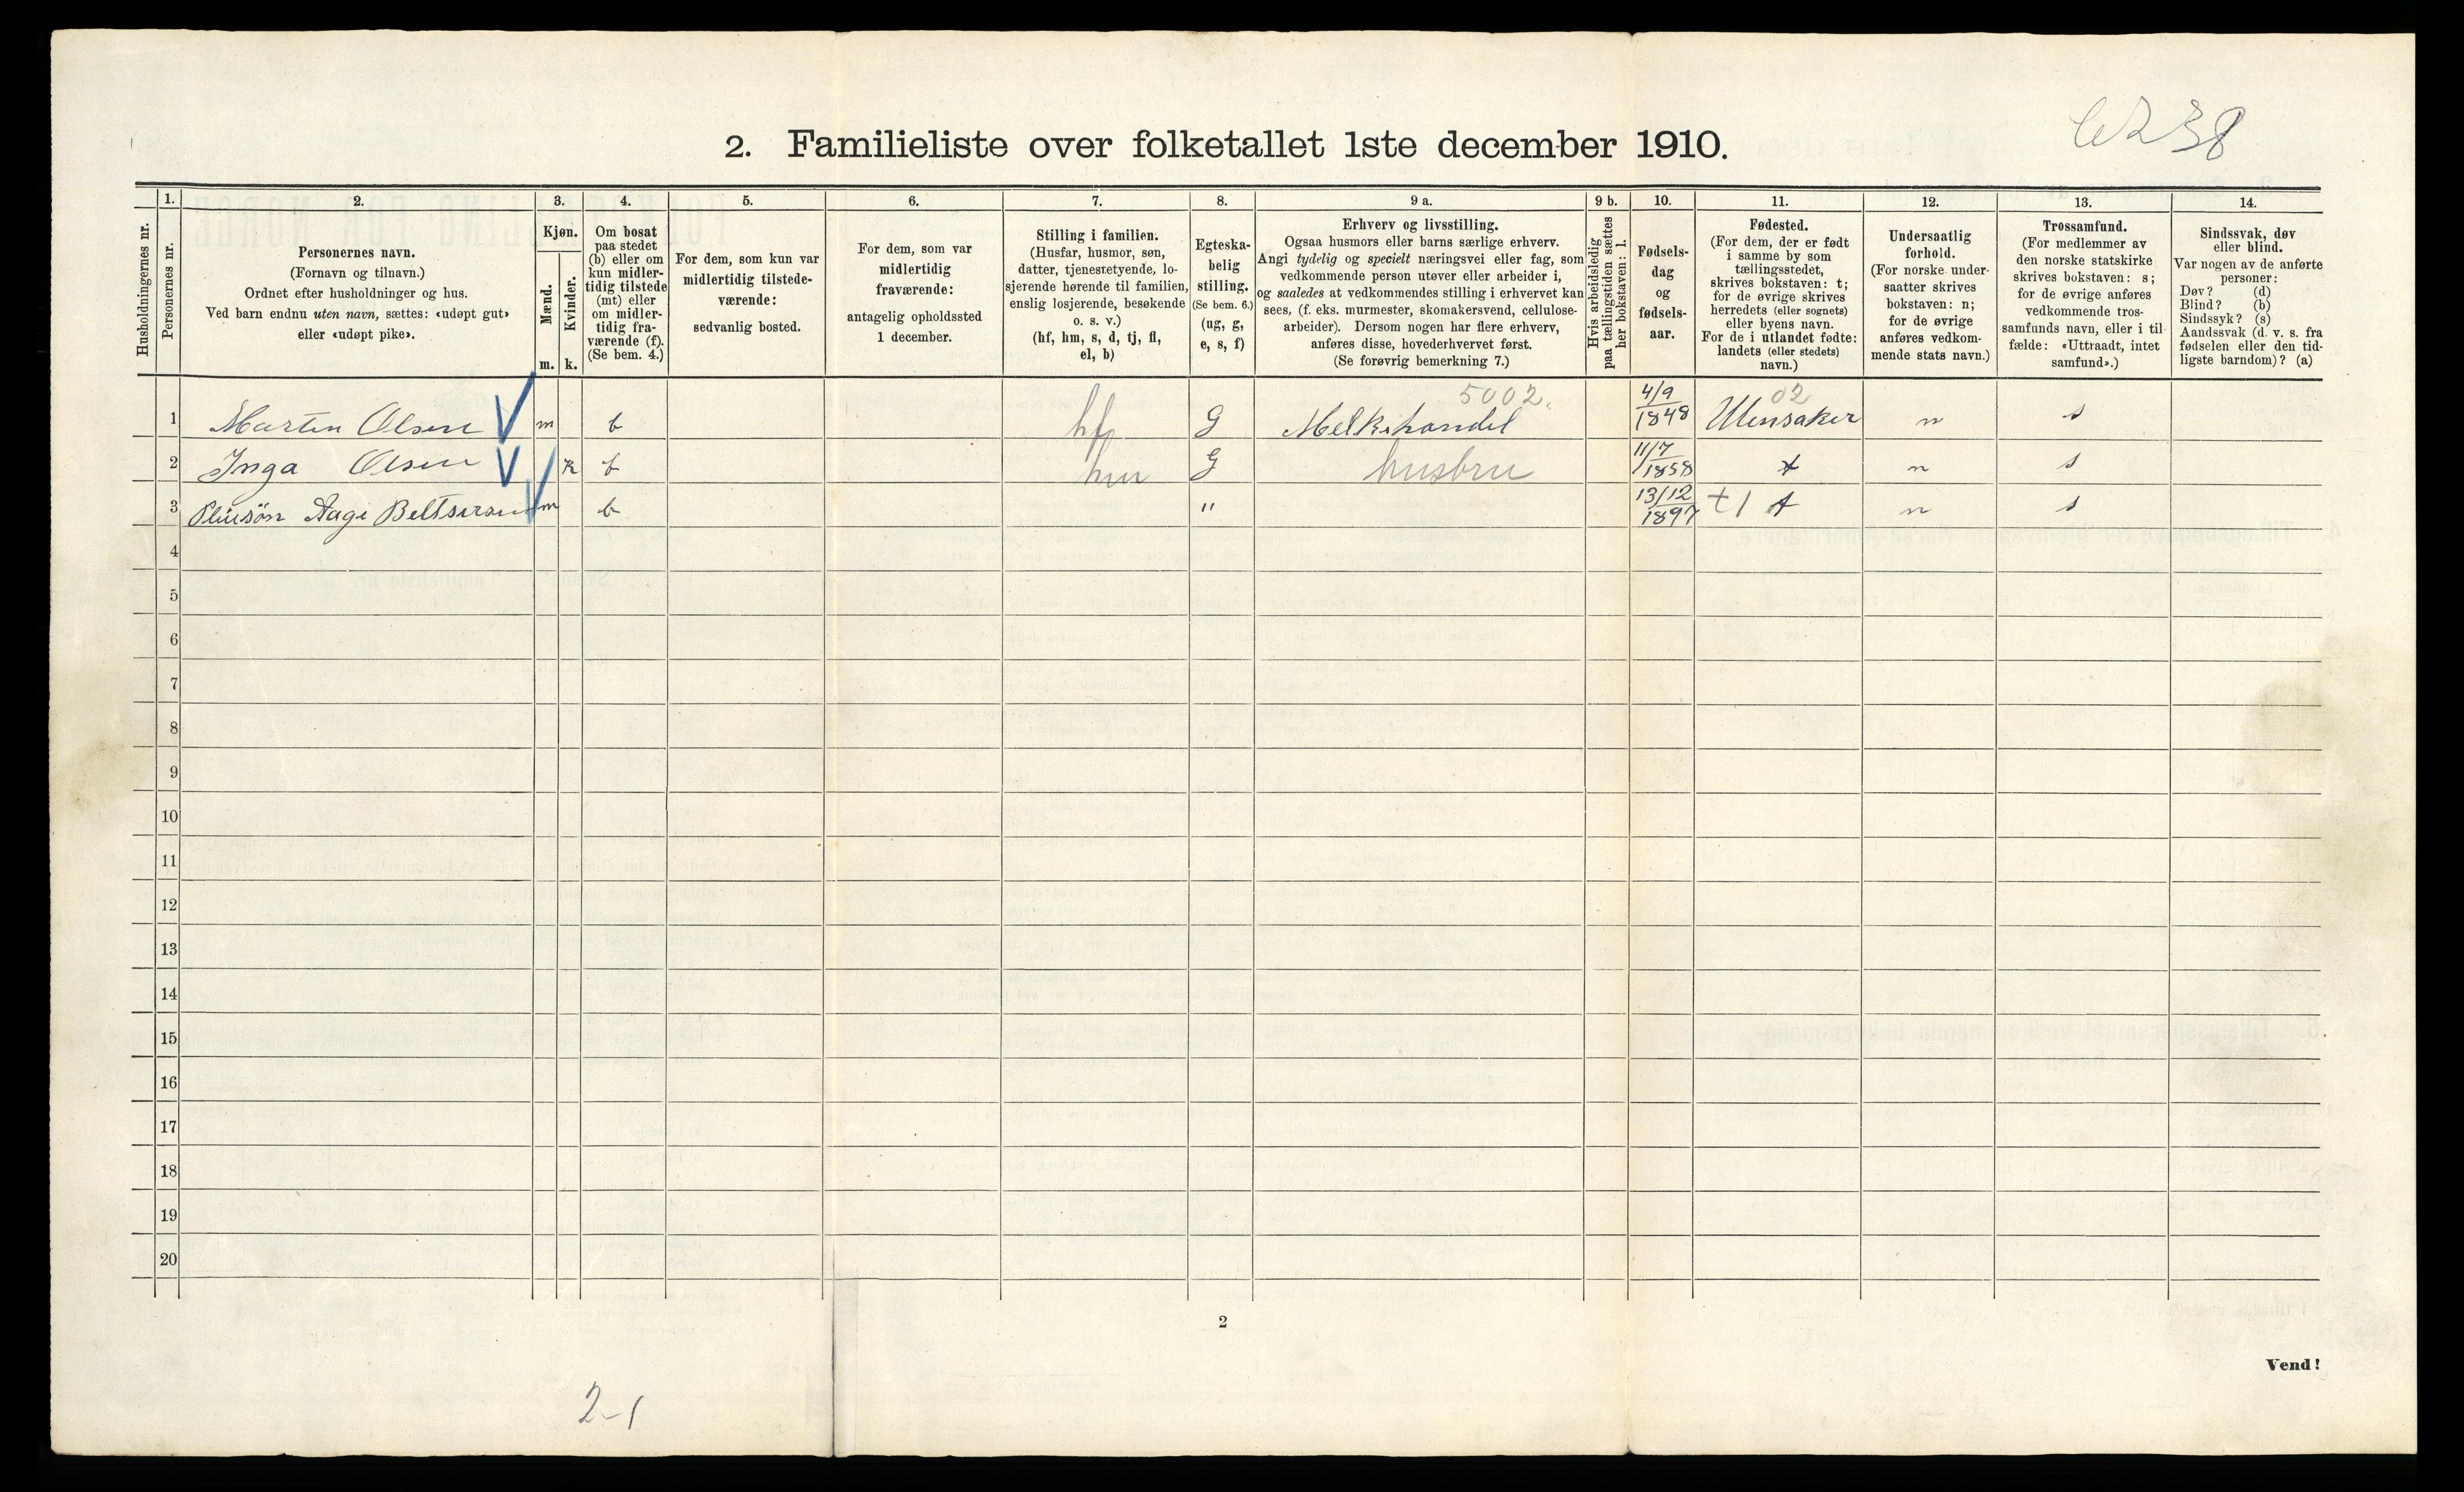 6238
2. Familieliste over folketallet 1ste december 1910.
Husholdningernes nr.
1.
Personernes nr.
2.
Personernes navn.
(Fornavn og tilnavn.)
Ordnet efter husholdninger og hus.
Ved barn endnu uten navn, sættes: «udøpt gut»
eller «udøpt pike».
3.
Kjøn.
Mænd.
Kvinder.
m. k.
4.
Om bosat
paa stedet
(b) eller om
kun midler-
tidig tilstede
(mt) eller
om midler-
tidig fra-
værende (f).
(Se bem. 4.)
5.
For dem, som kun var
midlertidig tilstede-
værende:
sedvanlig bosted.
6.
For dem, som var
midlertidig
fraværende:
antagelig opholdssted
1 december.
7.
Stilling i familien.
(Husfar, husmor, søn,
datter, tjenestetyende, lo-
sjerende hørende til familien,
enslig losjerende, besøkende
o. s. v.)
(hf, hm, s, d, tj, fl,
el, b)
8.
Egteska-
belig
stilling.
(Se bem. 6.)
(ug, g,
e, s, f)
9 a.
Erhverv og livsstilling.
Ogsaa husmors eller barns særlige erhverv.
Angi tydelig og specielt næringsvei eller fag, som
vedkommende person utøver eller arbeider i,
og saaledes at vedkommendes stilling i erhvervet kan
sees, (f. eks. murmester, skomakersvend, cellulose-
arbeider). Dersom nogen har flere erhverv,
anføres disse, hovederhvervet først.
(Se forøvrig bemerkning 7.)
9 b.
Hvis arbeidsledig
paa tællingstiden sættes
her bokstaven: l.
10.
Fødsels-
dag
og
fødsels-
aar.
11.
Fødested.
(For dem, der er født
i samme by som
tællingsstedet,
skrives bokstaven: t;
for de øvrige skrives
herredets (eller sognets)
eller byens navn.
For de i utlandet fødte:
landets (eller stedets)
navn.)
12.
Undersaatlig
forhold.
(For norske under-
saatter skrives
bokstaven: n;
for de øvrige
anføres vedkom-
mende stats navn.)
13.
Trossamfund.
(For medlemmer av
den norske statskirke
skrives bokstaven: s;
for de øvrige anføres
vedkommende tros-
samfunds navn, eller i til-
fælde: «Uttraadt, intet
samfund».)
14.
Sindssvak, døv
eller blind.
Var nogen av de anførte
personer:
Døv? (d)
Blind? (b)
Sindssyk? (s)
Aandssvak (d. v. s. fra
fødselen eller den tid-
ligste barndom)? (a)
5002. 02
1 Martin Olsen m b hf G Melkehandel 4/9 1848 Ulensaker n s
2 Inga Olsen k b hm G husbru 11/7 1858 t n s
3 Aage m b " 13/12 1897 t n s
4
5
6
7
8
9
10
11
12
13
14
15
16
17
18
19
20
2
Vend!
2-1